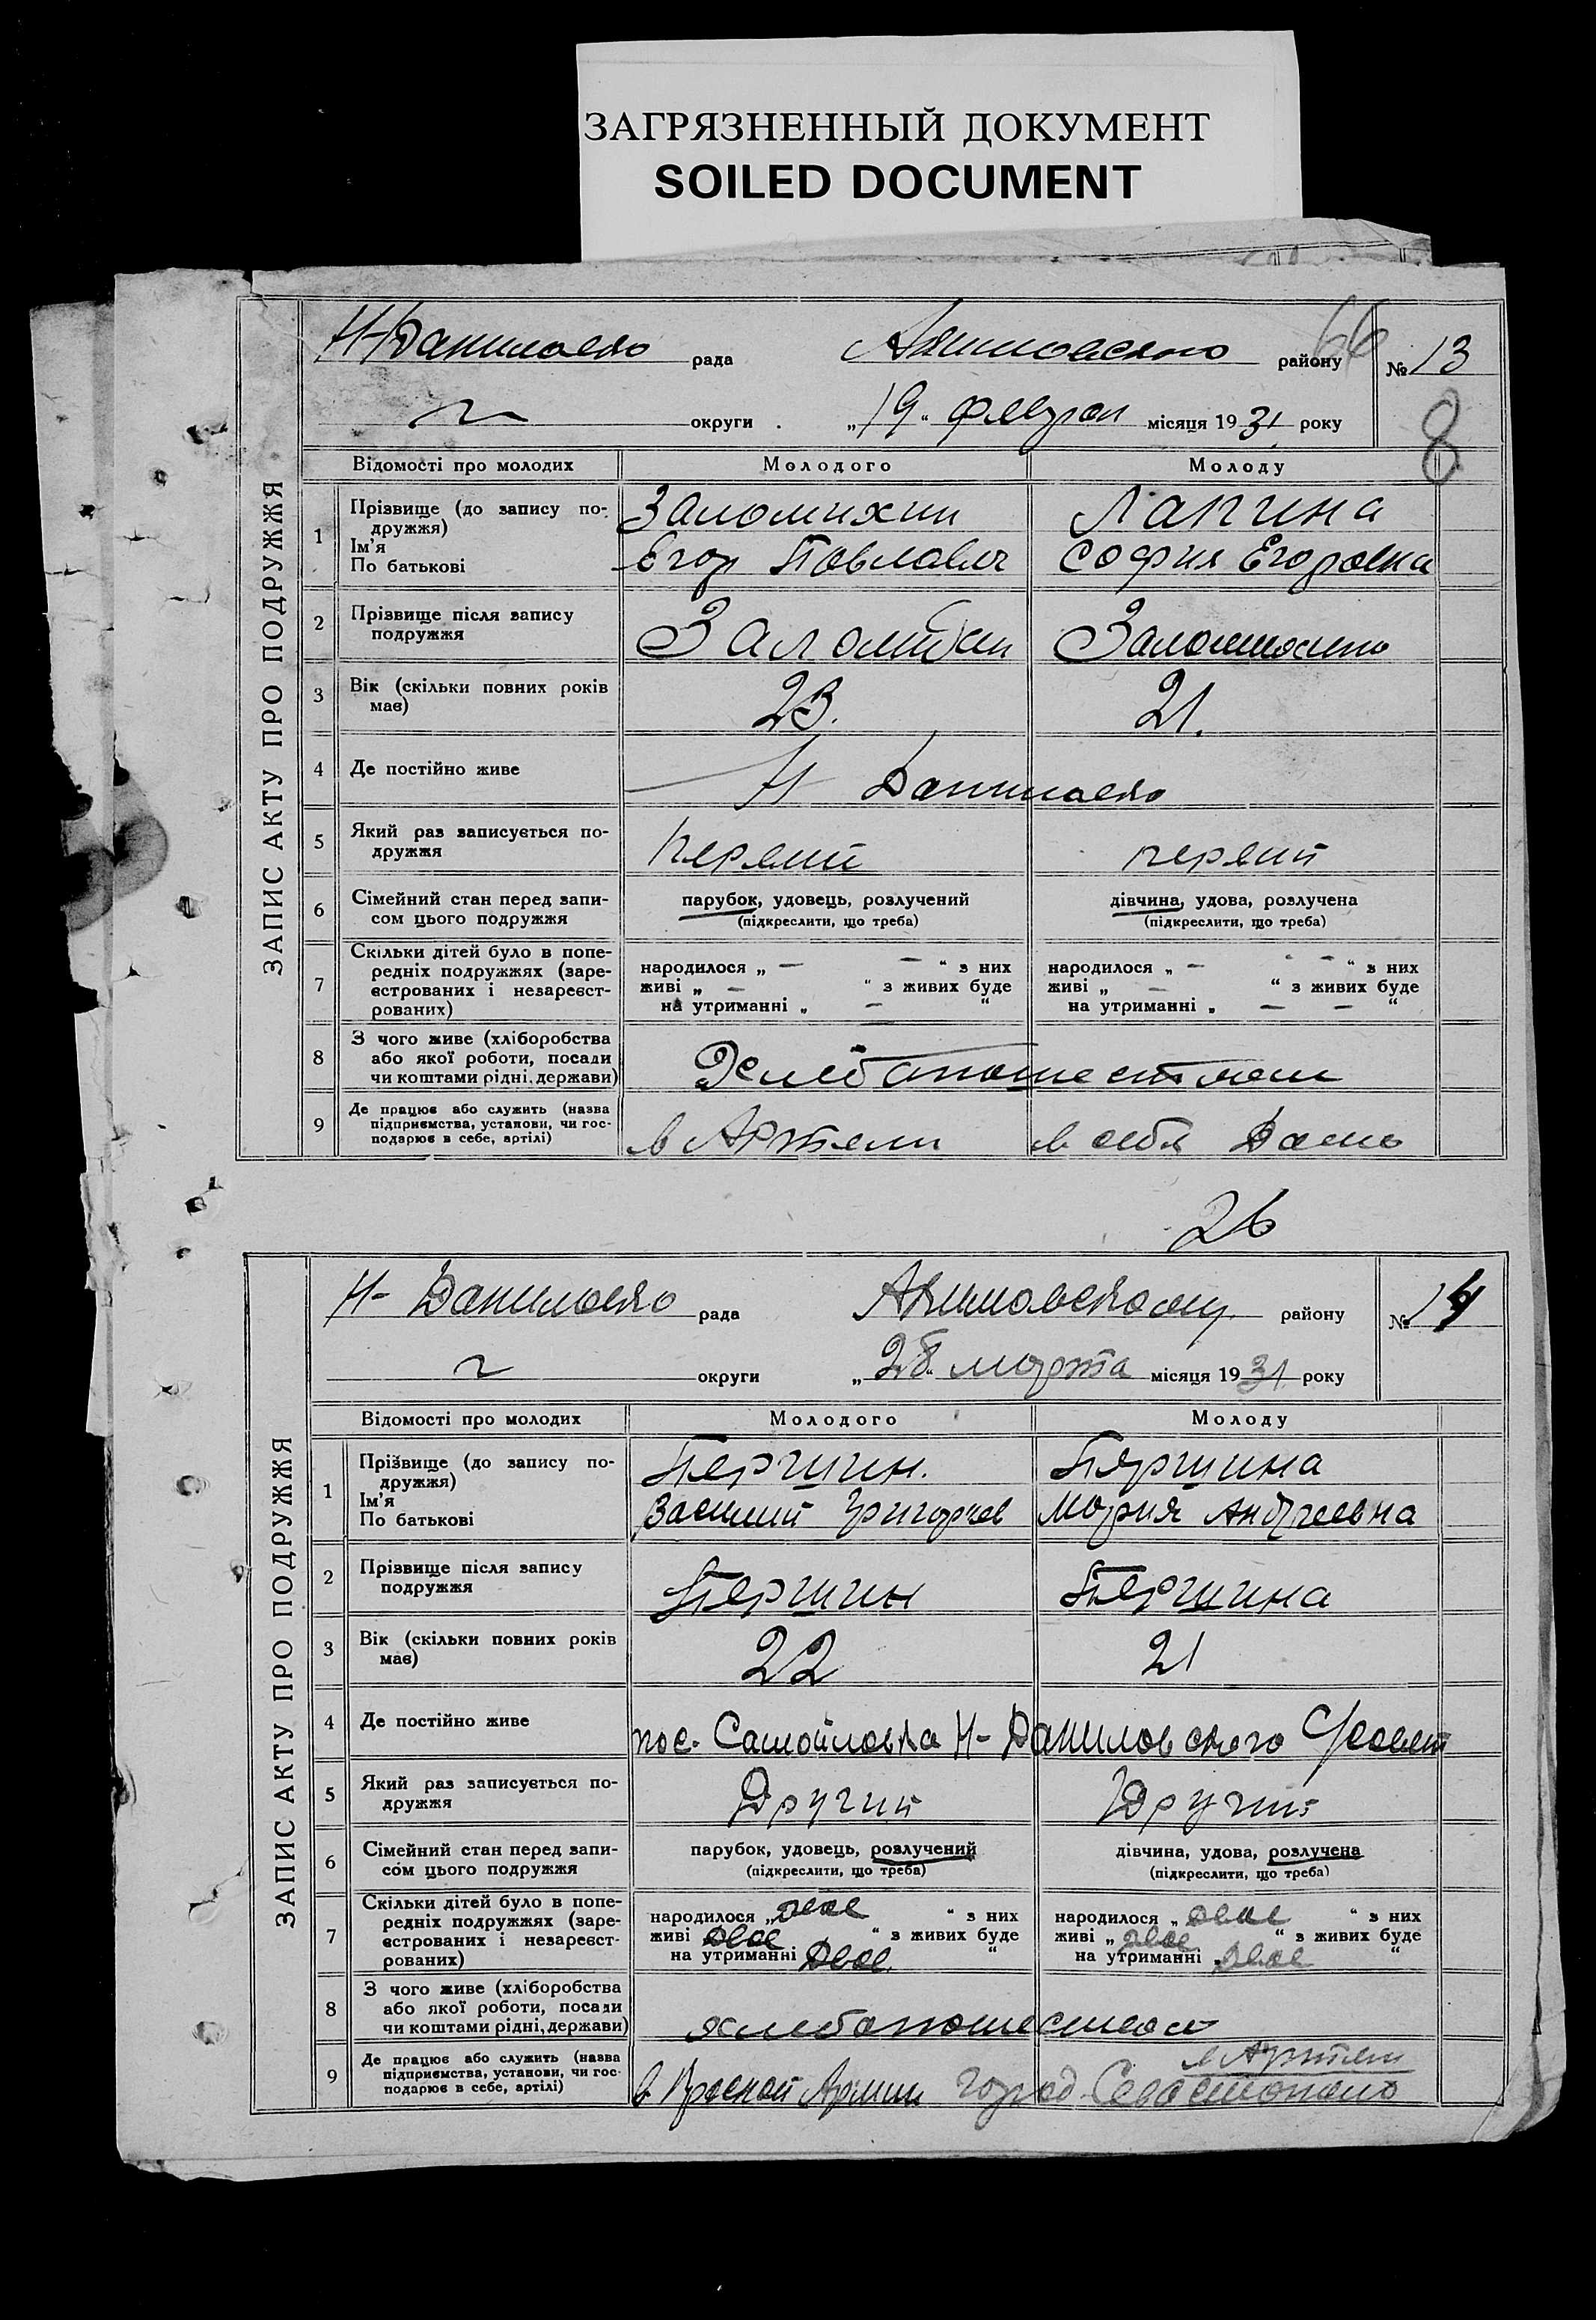 ЗАГРЯЗНЕННЫЙ ДОКУМЕНТ
SOILED DOCUMENT
ЗАПИС АКТУ ПРО ПОДРУЖЖЯ
66
Н-Данилаевка рада Акимовского району № 13
округи „19“ феврал місяця 1931. року
8
Відомості про молодих Молодого Молоду
1 Прізвище (до запису по-
дружжя)
Ім'я
По батькові
Заломихин Лапина
Егор Павлавич София Егоровна
2 Прізвище після запису
подружжя
3 Вік (скільки повних років
має)
23. 21.
4 Де постійно живе
Н
5 Який раз записується по-
дружжя
первий первий
6 Сімейний стан перед запи-
сом цього подружжя
парубок, удовець, розлучений дівчина, удова, розлучена
(підкреслити, що треба) (підкреслити, що треба)
7 Скільки дітей було в попе-
редніх подружжях (заре-
єстрованих і незареєст-
рованих)
народилося „ — — “ з них народилося „ — — “ з них
живі „ — “ з живих буде живі „ — “ з живих буде
на утриманні „ — “ на утриманні „ — — “
8 З чого живе (хліборобства
або якої роботи, посади
чи коштами рідні, держави)
9 Де працює або служить (назва
підприємства, установи, чи гос-
подарює в себе, артілі)
в Артели в себя
26
ЗАПИС АКТУ ПРО ПОДРУЖЖЯ
Н- рада району № 14
округи „28“ марта місяця 1931. року
Відомості про молодих Молодого Молоду
1 Прізвище (до запису по-
дружжя)
Ім'я
По батькові
Першин. Першина
Василий Григорчев Мария Андреевна
2 Прізвище після запису
подружжя
Першин Першина
3 Вік (скільки повних років
має)
22 21
4 Де постійно живе
пос. Самойловка Н-Даниловского
5 Який раз записується по-
дружжя
Другий Другий
6 Сімейний стан перед запи-
сом цього подружжя
парубок, удовець, розлучений дівчина, удова, розлучена
(підкреслити, що треба) (підкреслити, що треба)
7 Скільки дітей було в попе-
редніх подружжях (заре-
єстрованих і незареєст-
рованих)
народилося „двое “ з них народилося „двое “ з них
живі двое “ з живих буде живі „двое “ з живих буде
на утриманні двое “ на утриманні „двое “
8 З чого живе (хліборобства
або якої роботи, посади
чи коштами рідні, держави)
9 Де працює або служить (назва
підприємства, установи, чи гос-
подарює в себе, артілі)
в Артели
в Красной Армии город